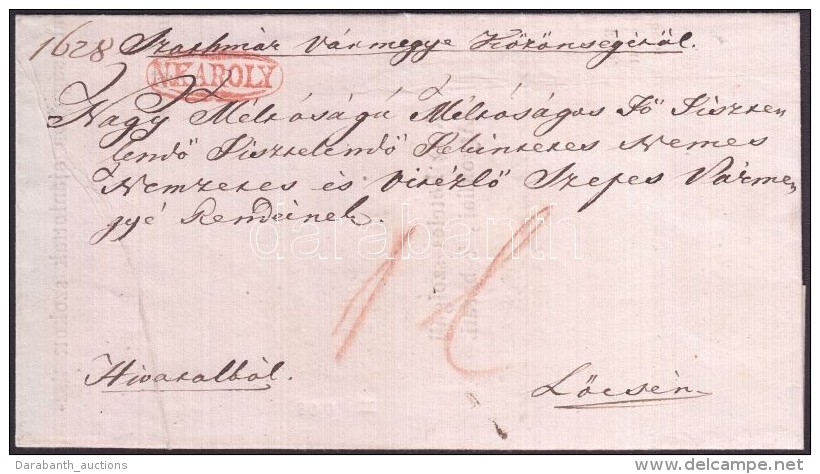 1628 Szathmár vármegye Közönségiről.
N.KÁROLY
Nagy Méltóságú Méltóságos Fő Tiszte
lendő Tisztelendő Tekintetes Nemes
Nemzetes és vitézlő Szepes Várme
gyé Rendeinek.
darabanth
Hivatalból.
Lőcsén
Darabanth_auctions
delcampe.net